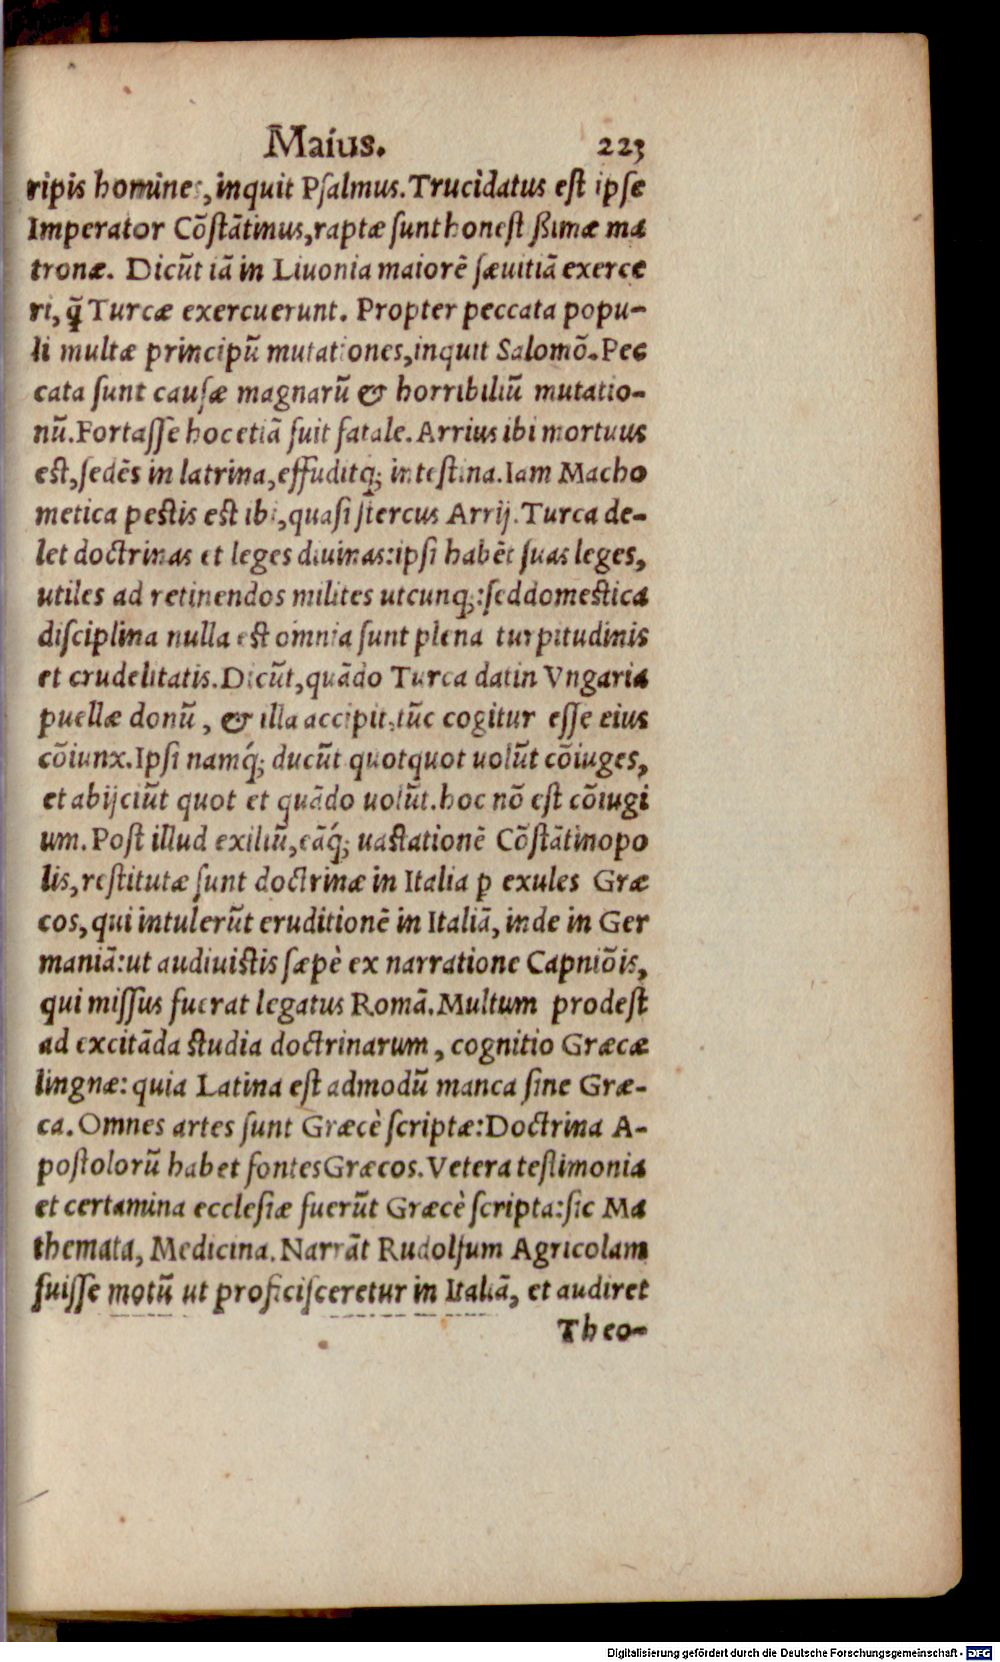 Maius. 223
ripis homines, inquit Psalmus. Trucidatus est ipse
Imperator Cõstãtinus, raptæ sunt honestißimæ ma
tronæ. Dicũt iã in Liuonia maiorẽ sæuitiã exerce
ri, q̃ Turcæ exercuerunt. Propter peccata popu-
li multæ principũ mutationes, inquit Salomõ. Pec
cata sunt causæ magnarũ & horribiliũ mutatio-
nũ. Fortasse hoc etiã fuit fatale. Arrius ibi mortuus
est, sedẽs in latrina, effuditq; intestina. Iam Macho
metica pestis est ibi, quasi stercus Arrij. Turca de-
let doctrinas et leges diuinas: ipsi habẽt suas leges,
utiles ad retinendos milites utcunq;: sed domestica
disciplina nulla est omnia sunt plena turpitudinis
et crudelitatis. Dicũt, quãdo Turca dat in Vngaria
puellæ donũ, & illa accipit, tũc cogitur esse eius
cõiunx. Ipsi namq́; ducũt quotquot uolũt cõiuges,
et abijciũt quot et quãdo uolũt. hoc nõ est cõiugi
um. Post illud exiliũ, eãq́; uastationẽ Cõstãtinopo
lis, restitutæ sunt doctrinæ in Italia ꝑ exules Græ
cos, qui intulerũt eruditionẽ in Italiã, inde in Ger
maniã: ut audiuistis sæpè ex narratione Capniõis,
qui missus fuerat legatus Romã. Multum prodest
ad excitãda studia doctrinarum, cognitio Græcæ
lingnæ: quia Latina est admodũ manca sine Græ-
ca. Omnes artes sunt Græcè scriptæ: Doctrina A-
postolorũ habet fontes Græcos. Vetera testimonia
et certamina ecclesiæ fuerũt Græcè scripta: sic Ma
themata, Medicina. Narrãt Rudolfum Agricolam
fuisse motũ ut proficisceretur in Italiã, et audiret
Theo-
Digitalisierung gefördert durch die Deutsche Forschungsgemeinschaft - DFG